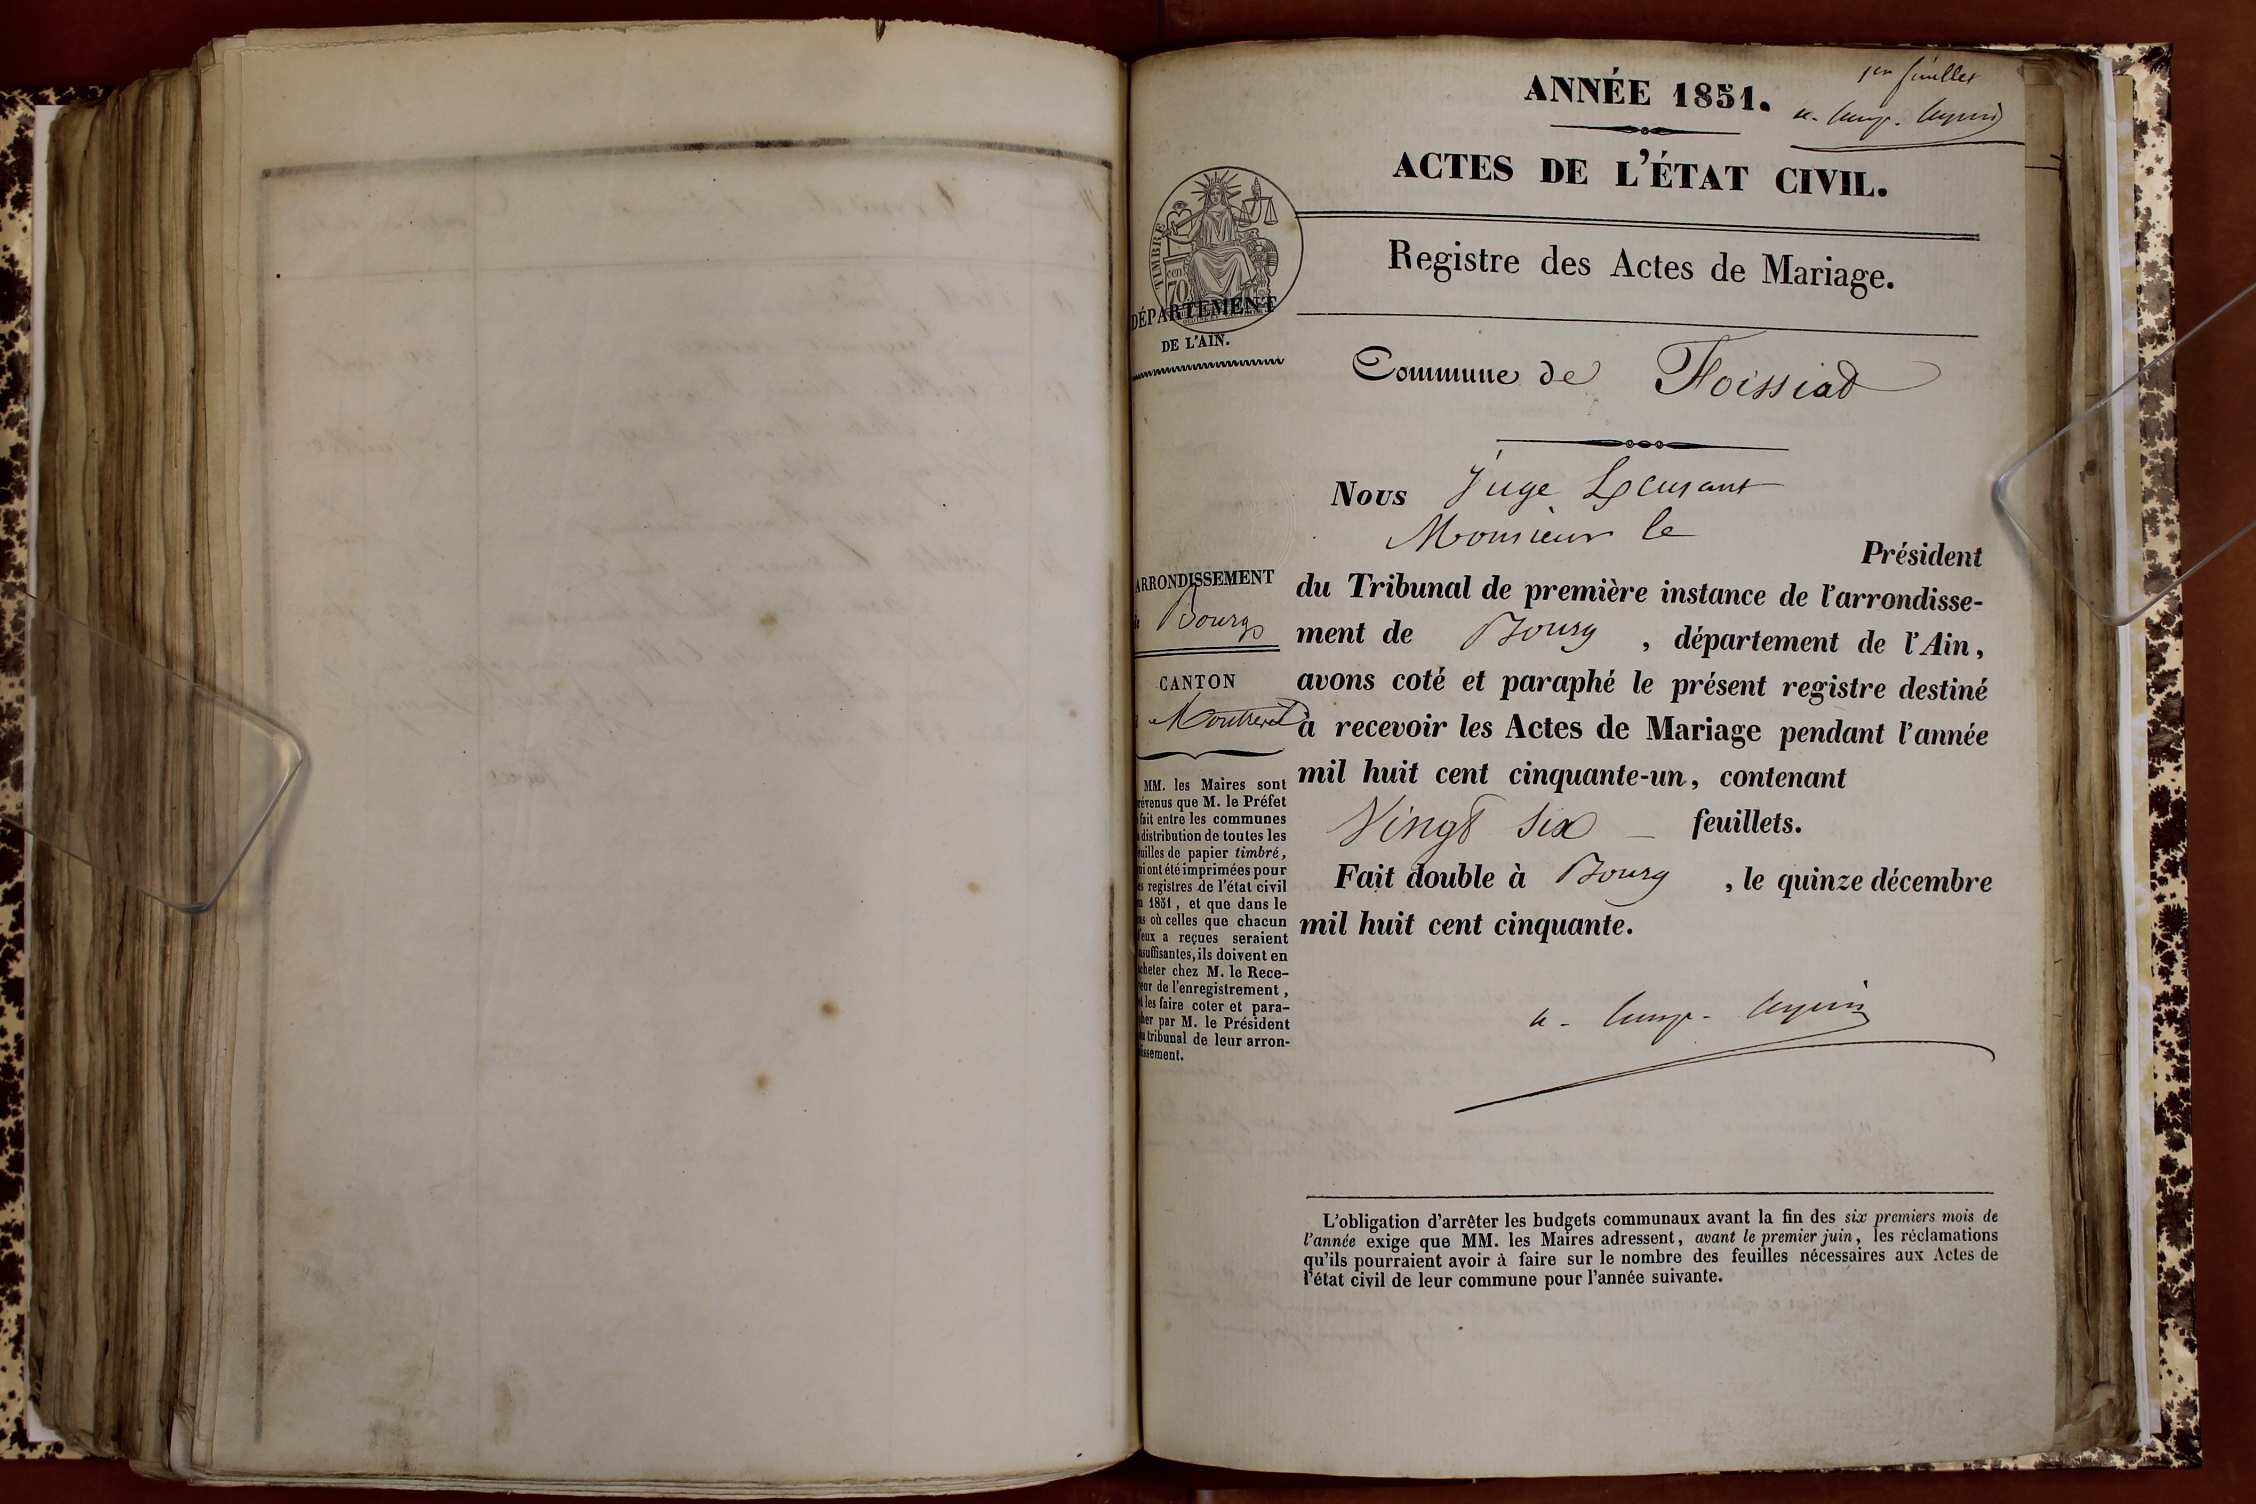 ANNÉE 1851.
1er feuillet
ACTES DE L'ÉTAT CIVIL.
Registre des Actes de Mariage.
TIMBRE
70
DÉPARTEMENT
DE L'AIN.
Commune de Foissiad
Nous Juge
Monsieur le
Président
du Tribunal de première instance de l'arrondisse-
ment de Bourg, département de l'Ain,
avons coté et paraphé le présent registre destiné
à recevoir les Actes de Mariage pendant l'année
mil huit cent cinquante-un, contenant
Vingt six feuillets.
Fait double à Bourg, le quinze décembre
mil huit cent cinquante.
ARRONDISSEMENT
Bourg
CANTON
Montrevel
MM. les Maires sont
révenus que M. le Préfet
fait entre les communes
distribution de toutes les
uilles de papier timbré,
ui ont été imprimées pour
es registres de l'état civil
1851, et que dans le
as où celles que chacun
'eux a reçues seraient
nsuffisantes, ils doivent en
cheter chez M. le Rece-
eur de l'enregistrement,
t les faire coter et para-
her par M. le Président
u tribunal de leur arron-
issement.
L'obligation d'arrêter les budgets communaux avant la fin des six premiers mois de
l'année exige que MM. les Maires adressent, avant le premier juin, les réclamations
qu'ils pourraient avoir à faire sur le nombre des feuilles nécessaires aux Actes de
l'état civil de leur commune pour l'année suivante.